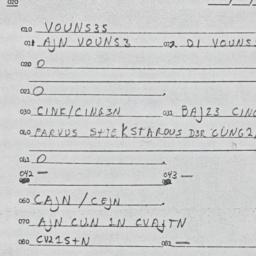 020
010 VOUNS3S
011 AJN VOUNS3 012 DI VOUNS
020 O
021 O
030 CINE/CING3N 031 BAJ23 CINC
040 PARVUS S+IEKSTAROUS D3R CUNG2
041 O
042 — 043 —
060 CAJN / CEJN
070 AJN CUN IN CVAJTN
080 CV21S+N 081 —